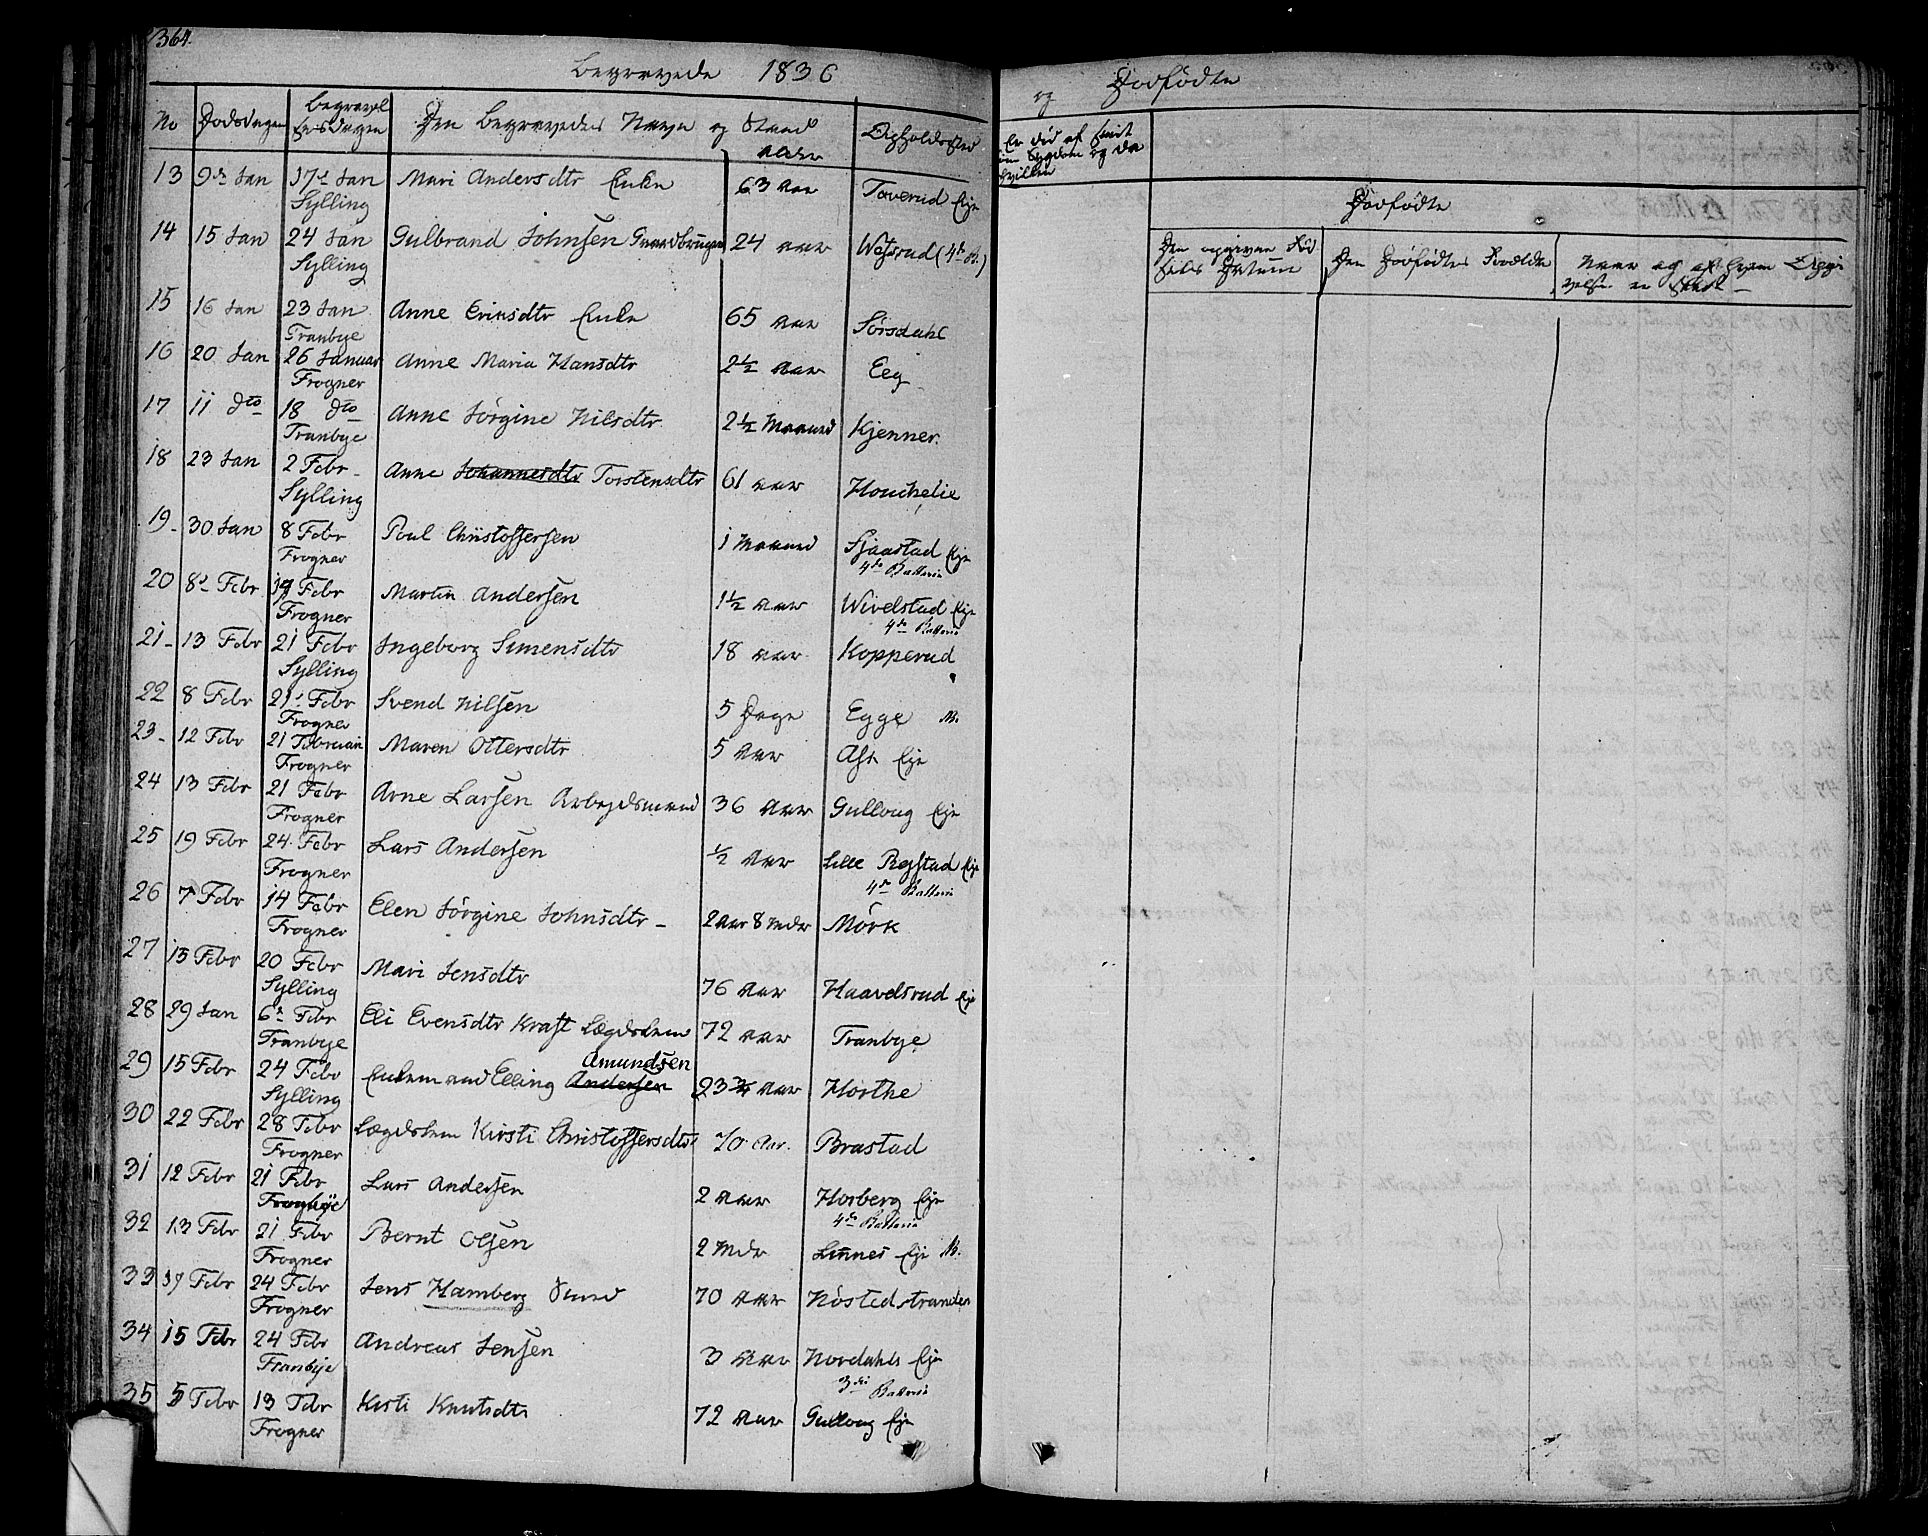 364.
Begravede 1836
No Dødsdagen Begravelsesdagen Den Begravedes Navn og Stand Alder Opholdssted
13 9de Jan 17d Jan Mari Andersdtr Enke 63 Aar Toverud Eje
Sylling
14 15 Jan 24 Jan Gulbrand Johnsen Gaardbruger 24 Aar Wejsrud (4de B.)
Sylling
15 16 Jan 23 Jan Anne Ericsdtr Enke 65 Aar Sørsdahl
Tranbye
16 20 Jan 26 Januar Anne Maria Hansdtr 2½ Aar Eeg
Frogner
17 11 dto 18 dto Anne Jørgine Nilsdtr 2½ Maaned Kjenner
Tranbye
18 23 Jan 2 Febr Anne Johannesdtr Torstensdtr 61 Aar Houchelie
Sylling
19 30 Jan 8 Febr Poul Christoffersen 1 Maaned Sjaastad Eje
Frogner 4de Batteri
20 8d Febr 19 Febr Martin Andersen 1½ Aar Wivelstad Eje
Frogner 4de Batteri
21 13 Febr 21 Febr Ingeborg Simensdtr 18 Aar Kopperud
Sylling
22 8 Febr 21d Febr Svend Nilsen 5 Dage Egge
Frogner
23 12 Febr 21 Februari Maren Ottersdtr 5 Aar Ask Eje
Frogner
24 13 Febr 21 Febr Arne Larsen Arbejdsmand 36 Aar Gulloug Eje
Frogner
25 19 Febr 24 Febr Lars Andersen ½ Aar Lille Regstad Eje
Frogner 4de Batteri
26 7 Febr 14 Febr Elen Jørgine Johnsdtr 2 Aar 8 Mdr Mörk
Frogner
27 13 Febr 20 Febr Mari Jensdtr 76 Aar Haavelsrud Eje
Sylling
28 29 Jan 6te Febr Eli Evensdtr Kraft Lægdslem 72 Aar Tranbye
Tranbye
29 15 Febr 24 Febr Enkemand Elling Andersen Amundsen 23¾ Aar Horthe
Sylling
30 22 Febr 28 Febr Lægdslem Kirsti Christoffersdtr 70 Aar. Brastad
Frogner
31 12 Febr 21 Febr Lars Andersen 2 Aar Horberg Eje
Tranbye 4de Batteri
32 13 Febr 21 Febr Bernt Olsen 2 Mdr Linnes Eje
Frogner
33 17 Febr 24 Febr Jens Hamberg 70 Aar Nöstedstranden
Frogner
34 15 Febr 24 Febr Andreas Jensen 3 Aar Nordahls Eje
Tranbye 3die Batteri
35 5 Febr 13 Febr Kisti Knutsdtr 72 Aar Gulloug Eje
Frogner
og Dødfødte
Er død af smit
som Sygdom og da
hvilken
Dødfødte
Den opgivne Fød
sels Datum
Den Dødfødtes Forældre
Naar og af hvem Opgi
velsen er skeet